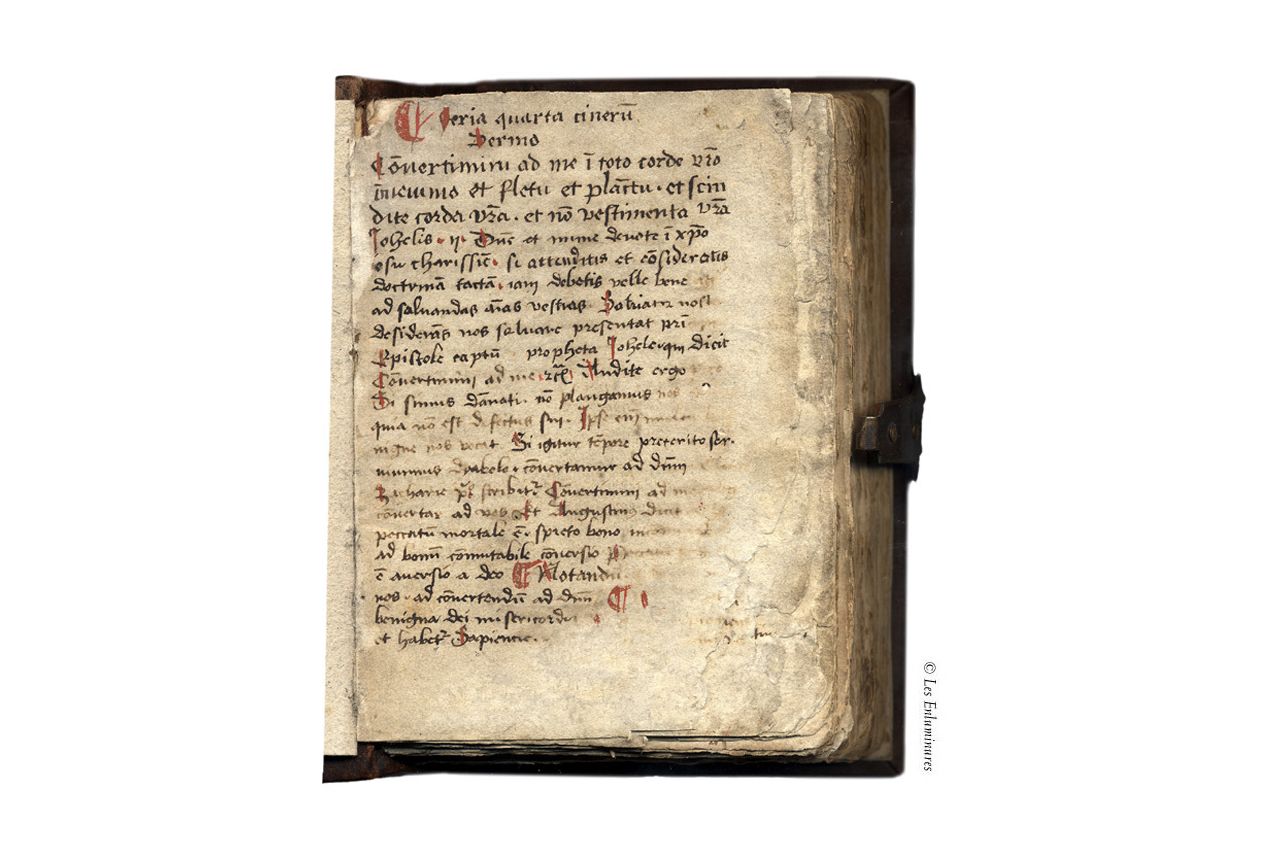 Feria quarta cinerū
Sermo
Cōuertimini ad me ī toto corde vr̄o
ī ieiunio et fletu et plāctu · et scin
dite corda vr̄a · et nō vestimenta vr̄a
Johelis · ij · Dūc et nunc deuote ī xp̄o
charissīe · si attenditis et cōsideratis
doctrinā tactā · iam debetis velle bene
ad saluandas aīas vestras Saluator nost
desiderās nos saluare presentat
Epistole captū propheta Johele qui dicit
Cōuertimini ad me Audite ergo
Si sumus dānati · nō plangamus nos
quia nō est defectus sui · Ipse enī
nos vocat Si igitur tēpore preterito ser·
uiuimus dyabolo · cōuertamur ad dnm
Zacharie scribitur Cōuertimini ad me
cōuertar ad vos Et Augustinus dicit
peccatū mortale ē · spreto bono
ad bonū cōmutabile cōuersio
ē auersio a deo Notandū
nos · ad cōuertendū ad dnm
benigna dei misericordia
et habetur Sapiencie ·
© Les Enluminures